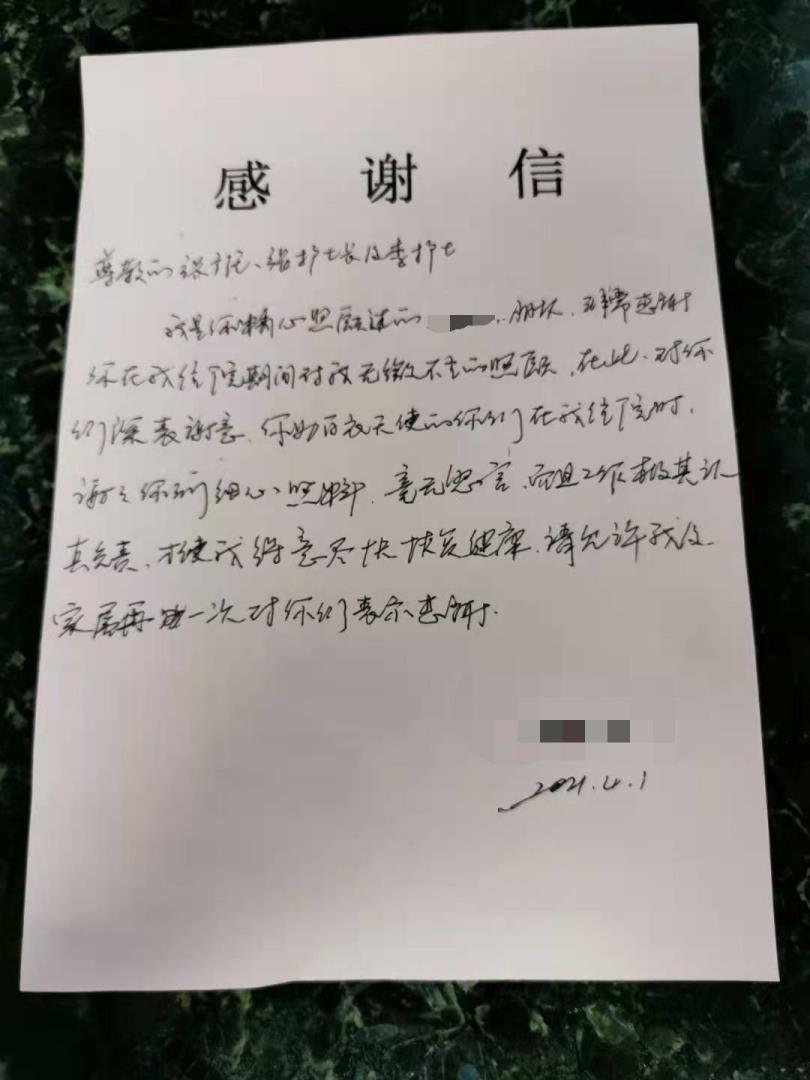 感谢信
尊敬的张主任、张护士长及李护士
我是你精心照顾过的 朋友，非常感谢
你在我住院期间对我无微不至的照顾，在此，对你
们深表谢意，你如白衣天使的你们在我住院时，
谢谢你们细心照料，毫无怨言，而且工作极其认
真负责，才使我得意尽快恢复健康，请允许我及
家属再一次对你们表示感谢。
2021.4.1